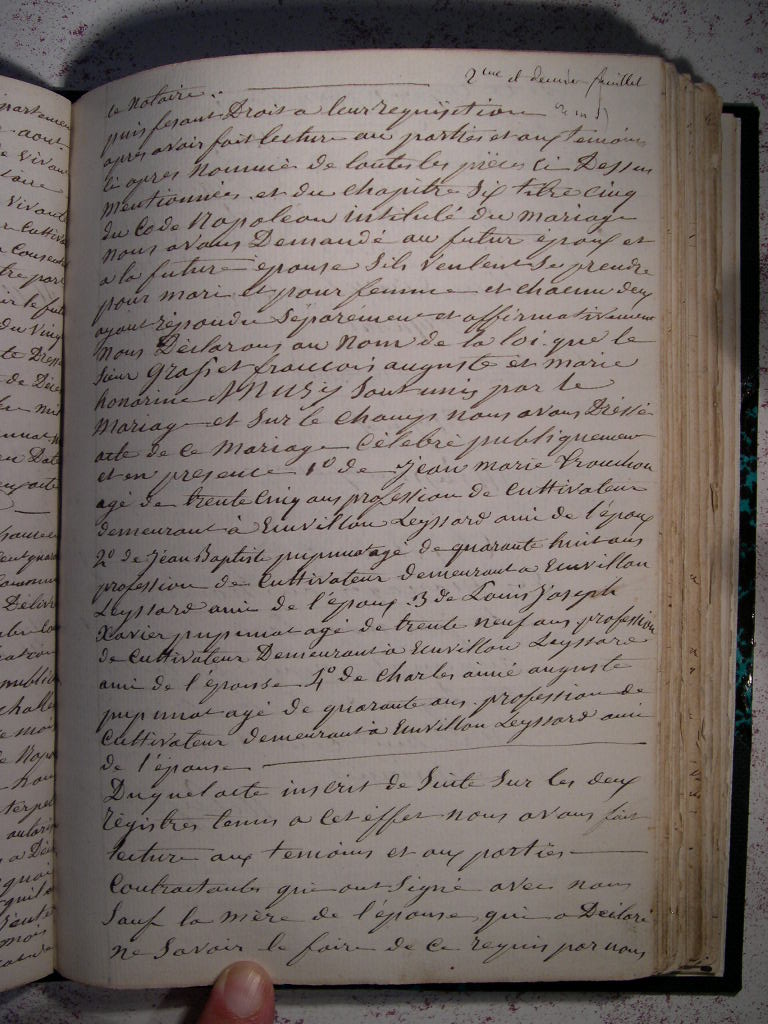 2me et dernier feuillet
le notaire.
puis fesant Droit a leur requisition
après avoir fait lecture au parties et aux temoins
ci après nommié de toutes les pièces ci Dessus
mentionnées et du chapitre Six titre cinq
du Code Napoleon intitulé du mariage
nous avons Demandé au futur époux et
a la future épouse Sils veulent Se prendre
pour mari et pour femme et chacun deux
ayant répondu Séparement et affirmativement
nous Déclarons au nom de la loi que le
Sieur Grasset francois auguste et marie
honorine Sont unis par le
Mariage et Sur le champ nous avons Dressé
acte de ce Mariage Célébré publiquement
et en presence 1º de Jean marie
agé de trente Cinq ans profession de Cultivateur
demeurant à Leyssard ami de l'époux
2º de Jean Baptiste pupunat agé de quarante huit ans
profession de Cultivateur demeurant a
Leyssard ami de l'époux .3 de Louis Joseph
Xavier pupunat agé de trente neuf ans profession
de Cultivateur Demeurant a Leyssard
ami de l'épouse 4º de charles aimé auguste
pupunat agé de quarante ans profession de
Cultivateur demeurant a Leyssard ami
de l'épouse
Duquel acte inscrit de Suite Sur les deux
régistres tenus a cet effet nous avons fait
lecture aux temoins et aux parties
Contractantes qui ont Signé avec nous
Sauf la mère de l'épouse qui a Déclaré
ne Savoir le faire de ce requis par nous